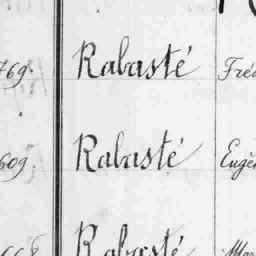 769. Rabasté Fréd
609. Rabasté Eugèn
668 Rabasté Mar